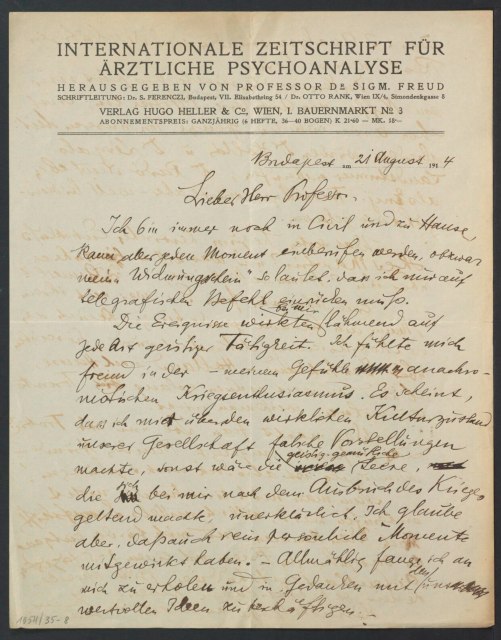 INTERNATIONALE ZEITSCHRIFT FÜR
ÄRZTLICHE PSYCHOANALYSE
HERAUSGEGEBEN VON PROFESSOR DR SIGM. FREUD
SCHRIFTLEITUNG: Dr. S. FERENCZI, Budapest, VII. Elisabethring 54 / Dr. OTTO RANK, Wien IX/4, Simondenkgasse 8
VERLAG HUGO HELLER & Co, WIEN, I. BAUERNMARKT No 3
ABONNEMENTSPREIS: GANZJÄHRIG (6 HEFTE, 36—40 BOGEN) K 21·60 — MK. 18·—
Budapest am 21 August 1914
Lieber Herr Professor,
Ich bin immer noch in Civil und zu Hause,
kann aber jeden Moment einberufen werden, obzwar
mein „Widmungsschein" so lautet, dass ich nur auf
telegrafischen Befehl einrücken muß.
Die Ereignisse wirkten bei mir lähmend auf
jede Art geistiger Tätigkeit. Ich fühlte mich
fremd in der — meinem Gefühle anachro-
nistischen Kriegsenthusiasmus. Es scheint,
dass ich mir über den wirklichen Kulturzustand
unserer Gesellschaft falsche Vorstellungen
machte, sonst wäre die geistig-gemütliche Leere,
die sich bei mir nach dem Ausbruch des Krieges
geltend machte, unerklärlich. Ich glaube
aber, daß auch rein persönliche Momente
mitgewirkt haben. — Allmählig fange ich an
mich zu erholen und in Gedanken mit den uns
wertvollen Ideen zu beschäftigen.
1054/35-8